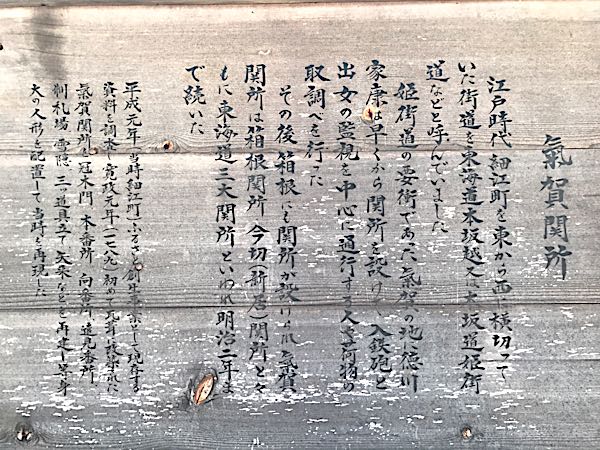 氣賀関所
江戸時代 細江町を東から西に横切って
いた街道を東海道本坂越又は本坂道姫街
道などと呼んでいました
姫街道の要衝であった氣賀の地に徳川
家康は早くから関所を設けて入鉄砲と
出女の監視を中心に通行する人や荷物の
取調べを行った
その後箱根にも関所が設けられ氣賀
関所は箱根関所 今切(新居)関所と々
もに東海道三大関所といわれ明治二年ま
で続いた
平成元年(当時細江町)ふるさと創生事業として現存する
資料を調査し寛政元年(一七八九)初めて瓦葺に
氣賀関所の冠木門 本番所 向番所 遠見番所
制札場 雪隠 三つ道具立て 矢来などを再建し等身
大の人形を配置して当時を再現した